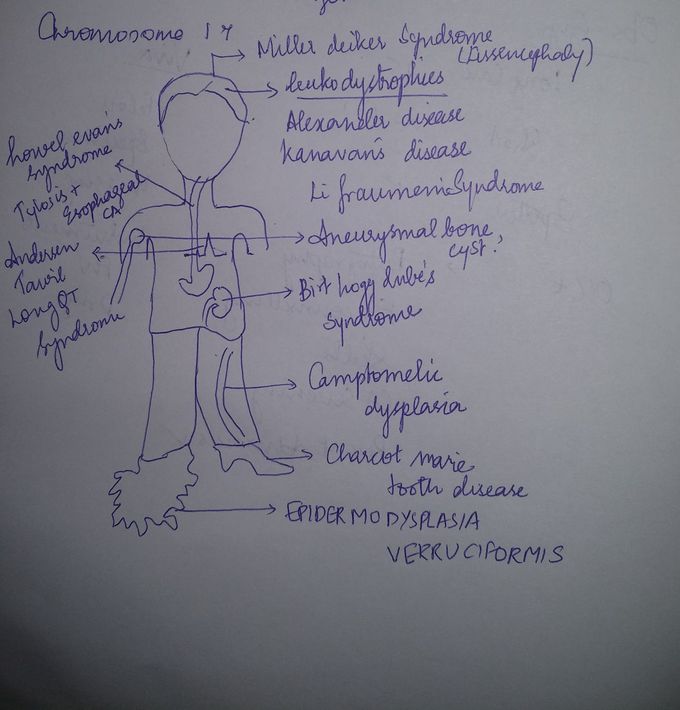 Chromosome 17
Miller deiker Syndrome
(Lissencephaly)
leukodystrophies
Alexander disease
Kanavan's disease
Li fraumeni Syndrome
Howel evan's
syndrome
Tylosis +
Esophageal
CA
Aneurysmal bone
cyst
Andersen
Tawil
Long QT
Syndrome
Birt hogg dube's
syndrome
Camptomelic
dysplasia
Charcot marie
tooth disease
EPIDERMODYSPLASIA
VERRUCIFORMIS